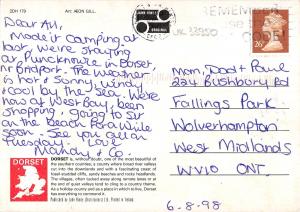 2DH 179
Art: AEON GILL.
JOHN HINDE
ORIGINAL
REMEMBER
CODE
26
Dear All,
Made it camping at
last, we're staying
at Puncknowle in Dorset
nr Bridport. The weather is
Hot & Sunny, windy
& cool by the Sea. We're
now at West Bay, been
shopping & going to sit
on the Beach for a while
soon. See you all on
Tuesday. Love
Mandy & G.
Mom, Dad + Rowe
224 Bushbury Rd
Fallings Park
Wolverhampton
West Midlands
WV10 0NT
6-8-98
DORSET
DORSET is, without doubt, one of the most beautiful of
the southern counties, a county where broad river valleys
run into the downlands and with a fascinating past of
fossil-studded cliffs, sandy beaches and rocky headlands.
The villages, often tucked away along remote lanes or at
the end of quiet valleys tend to cling to a country theme.
As a holiday county and as a place in which to live, Dorset
has everything to commend it.
Published by John Hinde (Distributors) Ltd. Printed in Ireland.